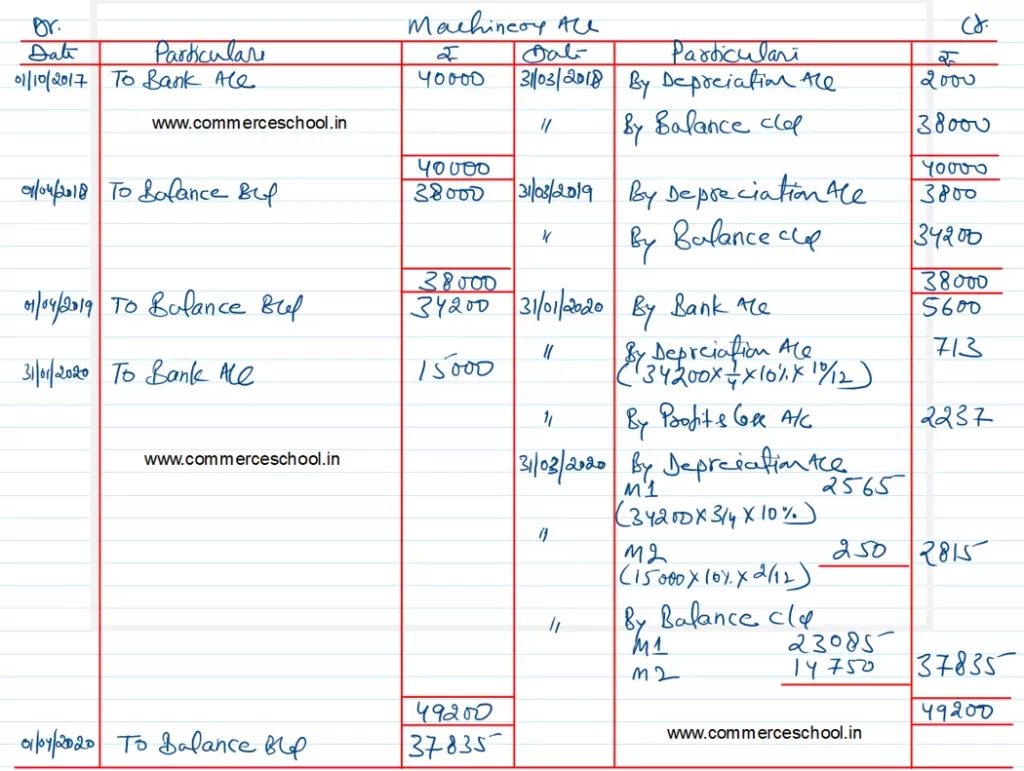 Dr. Machinery A/c Cr.
Date Particulars ₹ Date Particulars ₹
01/10/2017 To Bank A/c 40000 31/03/2018 By Depreciation A/c 2000
www.commerceschool.in " By Balance c/d 38000
40000 40000
01/04/2018 To Balance B/d 38000 31/03/2019 By Depreciation A/c 3800
" By Balance c/d 34200
38000 38000
01/04/2019 To Balance B/d 34200 31/01/2020 By Bank A/c 5600
" By Depreciation A/c 713
31/01/2020 To Bank A/c 15000 (34200 x 1/4 x 10% x 10/12)
" By Profit & Loss A/c 2237
www.commerceschool.in 31/03/2020 By Depreciation A/c
M1 2565
(34200 x 3/4 x 10%)
"
M2 250 2815
(15000 x 10% x 2/12)
" By Balance c/d
M1 23085
M2 14750 37835
49200 49200
01/04/2020 To Balance B/d 37835 www.commerceschool.in